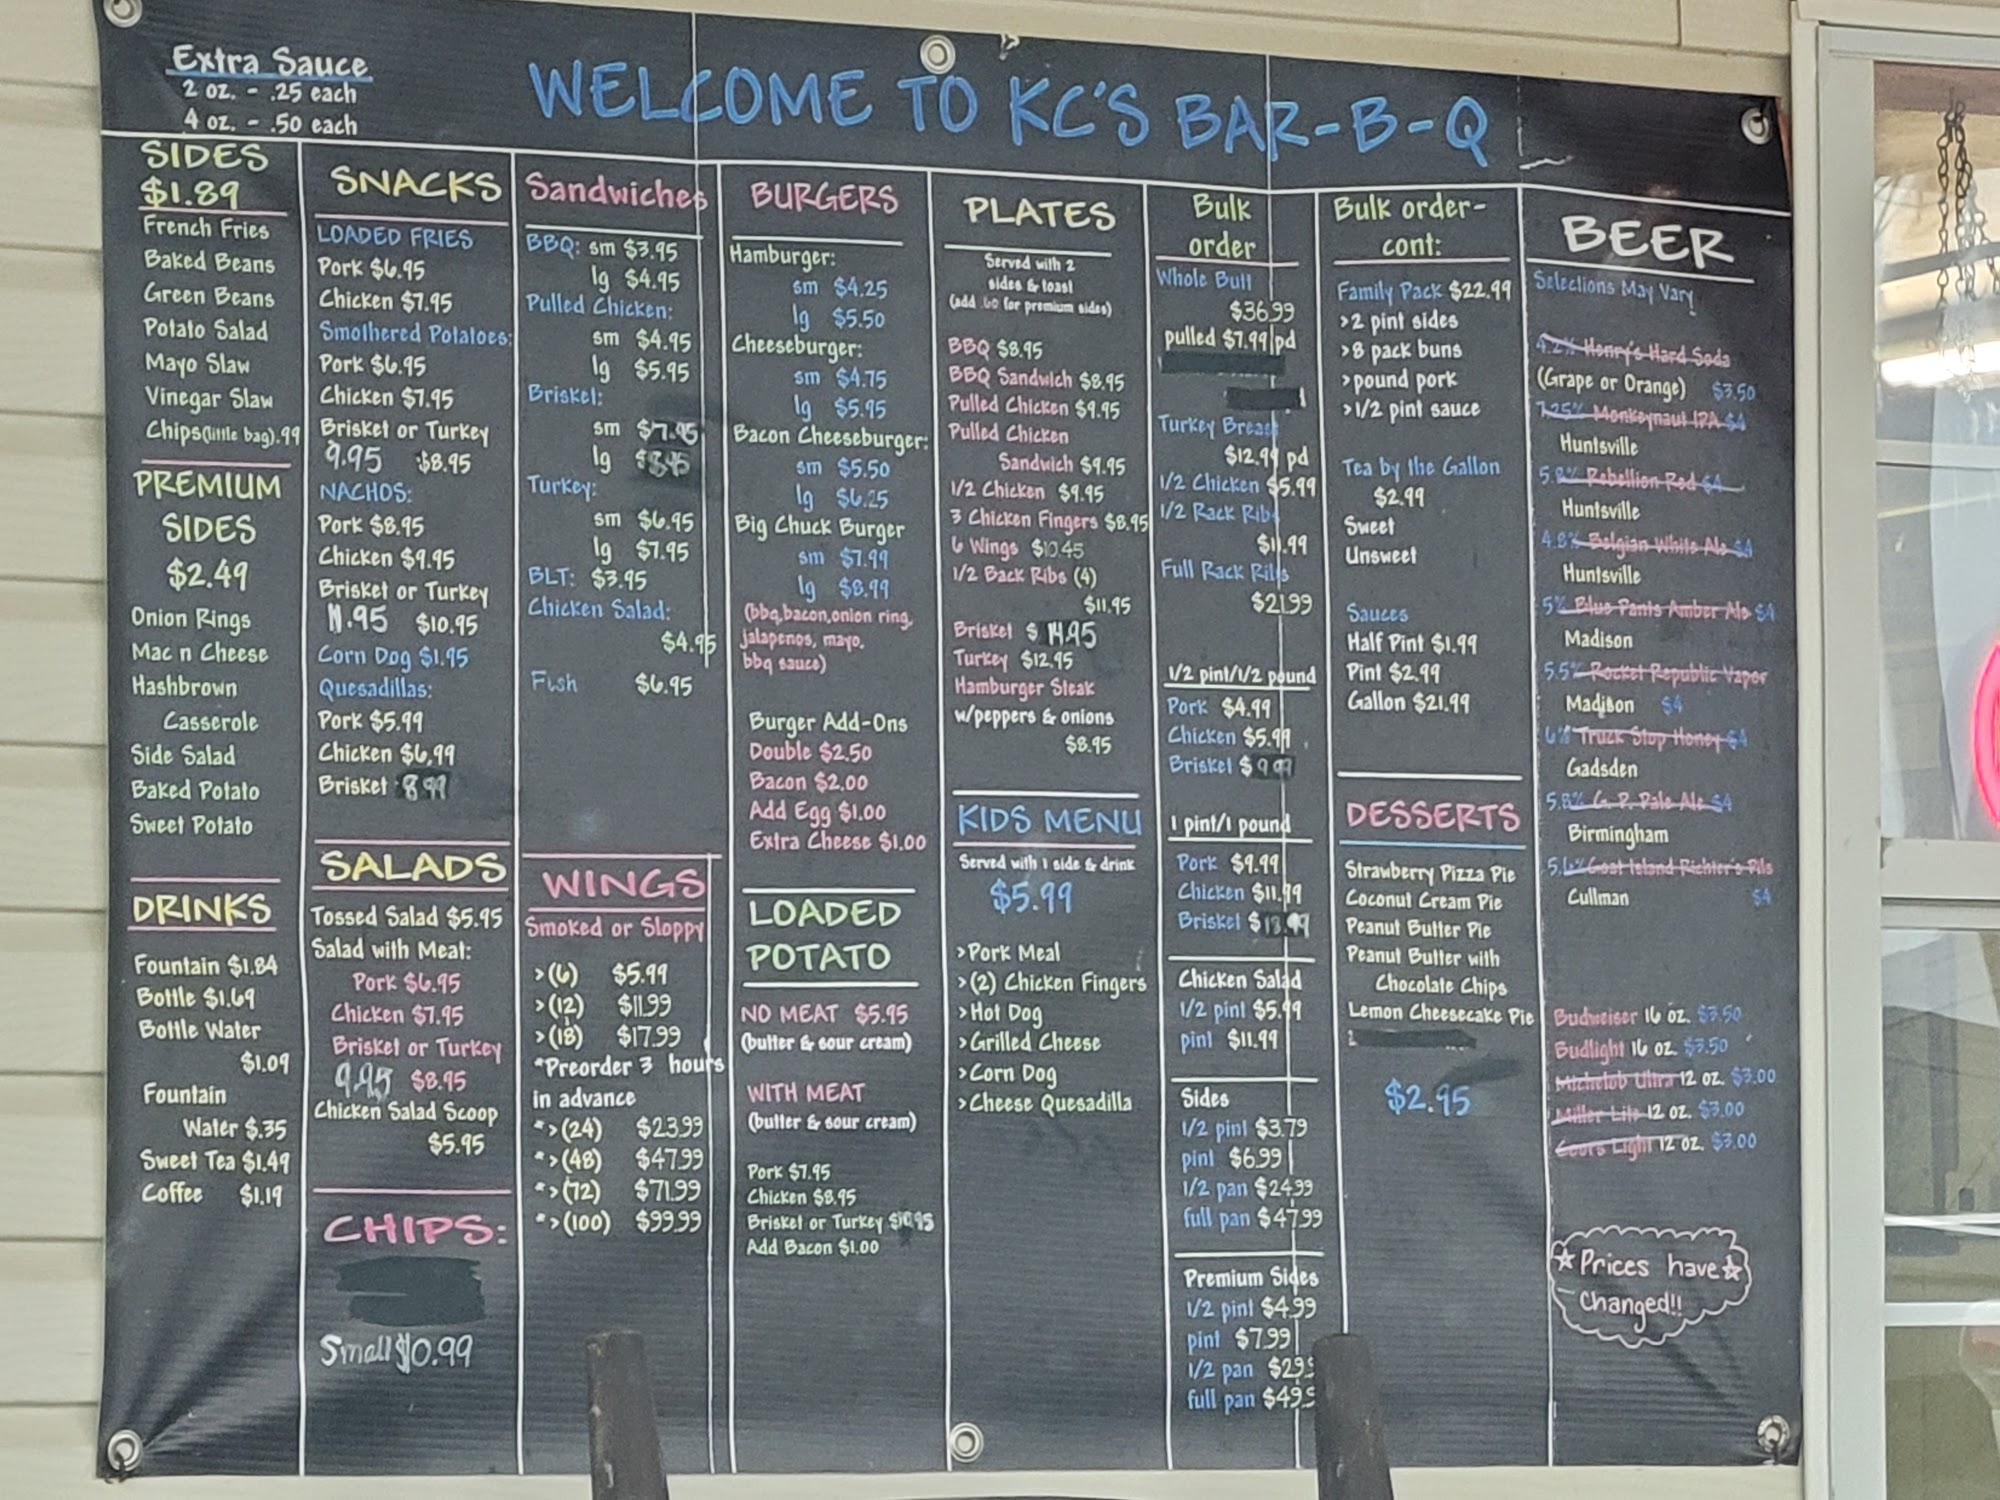 Extra Sauce
2 oz. - .25 each
4 oz. - .50 each
WELCOME TO KC'S BAR-B-Q
SIDES
$1.89
French Fries
Baked Beans
Green Beans
Potato Salad
Mayo Slaw
Vinegar Slaw
Chips(little bag).99
PREMIUM
SIDES
$2.49
Onion Rings
Mac n Cheese
Hashbrown
Casserole
Side Salad
Baked Potato
Sweet Potato
DRINKS
Fountain $1.84
Bottle $1.69
Bottle Water
$1.09
Fountain
Water $.35
Sweet Tea $1.49
Coffee $1.19
SNACKS
LOADED FRIES
Pork $6.95
Chicken $7.95
Smothered Potatoes:
Pork $6.95
Chicken $7.95
Brisket or Turkey
9.95 $8.95
NACHOS:
Pork $8.95
Chicken $9.95
Brisket or Turkey
11.95 $10.95
Corn Dog $1.95
Quesadillas:
Pork $5.99
Chicken $6.99
Brisket 8.99
SALADS
Tossed Salad $5.95
Salad with Meat:
Pork $6.95
Chicken $7.95
Brisket or Turkey
9.95 $8.95
Chicken Salad Scoop
$5.95
CHIPS:
Small $0.99
Sandwiches
BBQ: sm $3.95
lg $4.95
Pulled Chicken:
sm $4.95
lg $5.95
Brisket:
sm $7.95
lg $8.95
Turkey:
sm $6.95
lg $7.95
BLT: $3.95
Chicken Salad:
$4.95
Fish $6.95
WINGS
Smoked or Sloppy
>(6) $5.99
>(12) $11.99
>(18) $17.99
*Preorder 3 hours
in advance
*>(24) $23.99
*>(48) $47.99
*>(72) $71.99
*>(100) $99.99
BURGERS
Hamburger:
sm $4.25
lg $5.50
Cheeseburger:
sm $4.75
lg $5.95
Bacon Cheeseburger:
sm $5.50
lg $6.25
Big Chuck Burger
sm $7.99
lg $8.99
(bbq,bacon,onion ring,
jalapenos, mayo,
bbq sauce)
Burger Add-Ons
Double $2.50
Bacon $2.00
Add Egg $1.00
Extra Cheese $1.00
LOADED
POTATO
NO MEAT $5.95
(butter & sour cream)
WITH MEAT
(butter & sour cream)
Pork $7.95
Chicken $8.95
Brisket or Turkey
Add Bacon $1.00
PLATES
Served with 2
sides & toast
(add .60 for premium sides)
BBQ $8.95
BBQ Sandwich $8.95
Pulled Chicken $9.95
Pulled Chicken
Sandwich $9.95
1/2 Chicken $9.95
3 Chicken Fingers $8.95
6 Wings $10.45
1/2 Back Ribs (4)
$11.95
Brisket $ 14.95
Turkey $12.95
Hamburger Steak
w/peppers & onions
$8.95
KIDS MENU
Served with 1 side & drink
$5.99
>Pork Meal
>(2) Chicken Fingers
>Hot Dog
>Grilled Cheese
>Corn Dog
>Cheese Quesadilla
Bulk
order
Whole Butt
$36.99
pulled $7.99 pd
Turkey Breast
$12.99 pd
1/2 Chicken $5.99
1/2 Rack Ribs
$11.99
Full Rack Ribs
$21.99
1/2 pint/1/2 pound
Pork $4.99
Chicken $5.99
Brisket $9.99
1 pint/1 pound
Pork $9.99
Chicken $11.99
Brisket $
Chicken Salad
1/2 pint $5.99
pint $11.99
Sides
1/2 pint $3.79
pint $6.99
1/2 pan $24.99
full pan $47.99
Premium Sides
1/2 pint $4.99
pint $7.99
1/2 pan
full pan
Bulk order-
cont:
Family Pack $22.99
>2 pint sides
>8 pack buns
>pound pork
>1/2 pint sauce
Tea by the Gallon
$2.99
Sweet
Unsweet
Sauces
Half Pint $1.99
Pint $2.99
Gallon $21.99
DESSERTS
Strawberry Pizza Pie
Coconut Cream Pie
Peanut Butter Pie
Peanut Butter with
Chocolate Chips
Lemon Cheesecake Pie
$2.95
BEER
Selections May Vary
4.2% Henry's Hard Soda
(Grape or Orange) $3.50
7.25% Monkeynaut IPA $4
Huntsville
5.8% Rebellion Red $4
Huntsville
4.8% Belgian White Ale $4
Huntsville
5% Blue Pants Amber Ale $4
Madison
5.5% Rocket Republic Vapor
Madison $4
6% Truck Stop Honey $4
Gadsden
5.8% G. P. Pale Ale $4
Birmingham
5.6% Goat Island Richter's Pils
Cullman $4
Budweiser 16 oz. $3.50
Budlight 16 oz. $3.50
Michelob Ultra 12 oz. $3.00
Miller Lite 12 oz. $3.00
Coors Light 12 oz. $3.00
Prices have
Changed!!